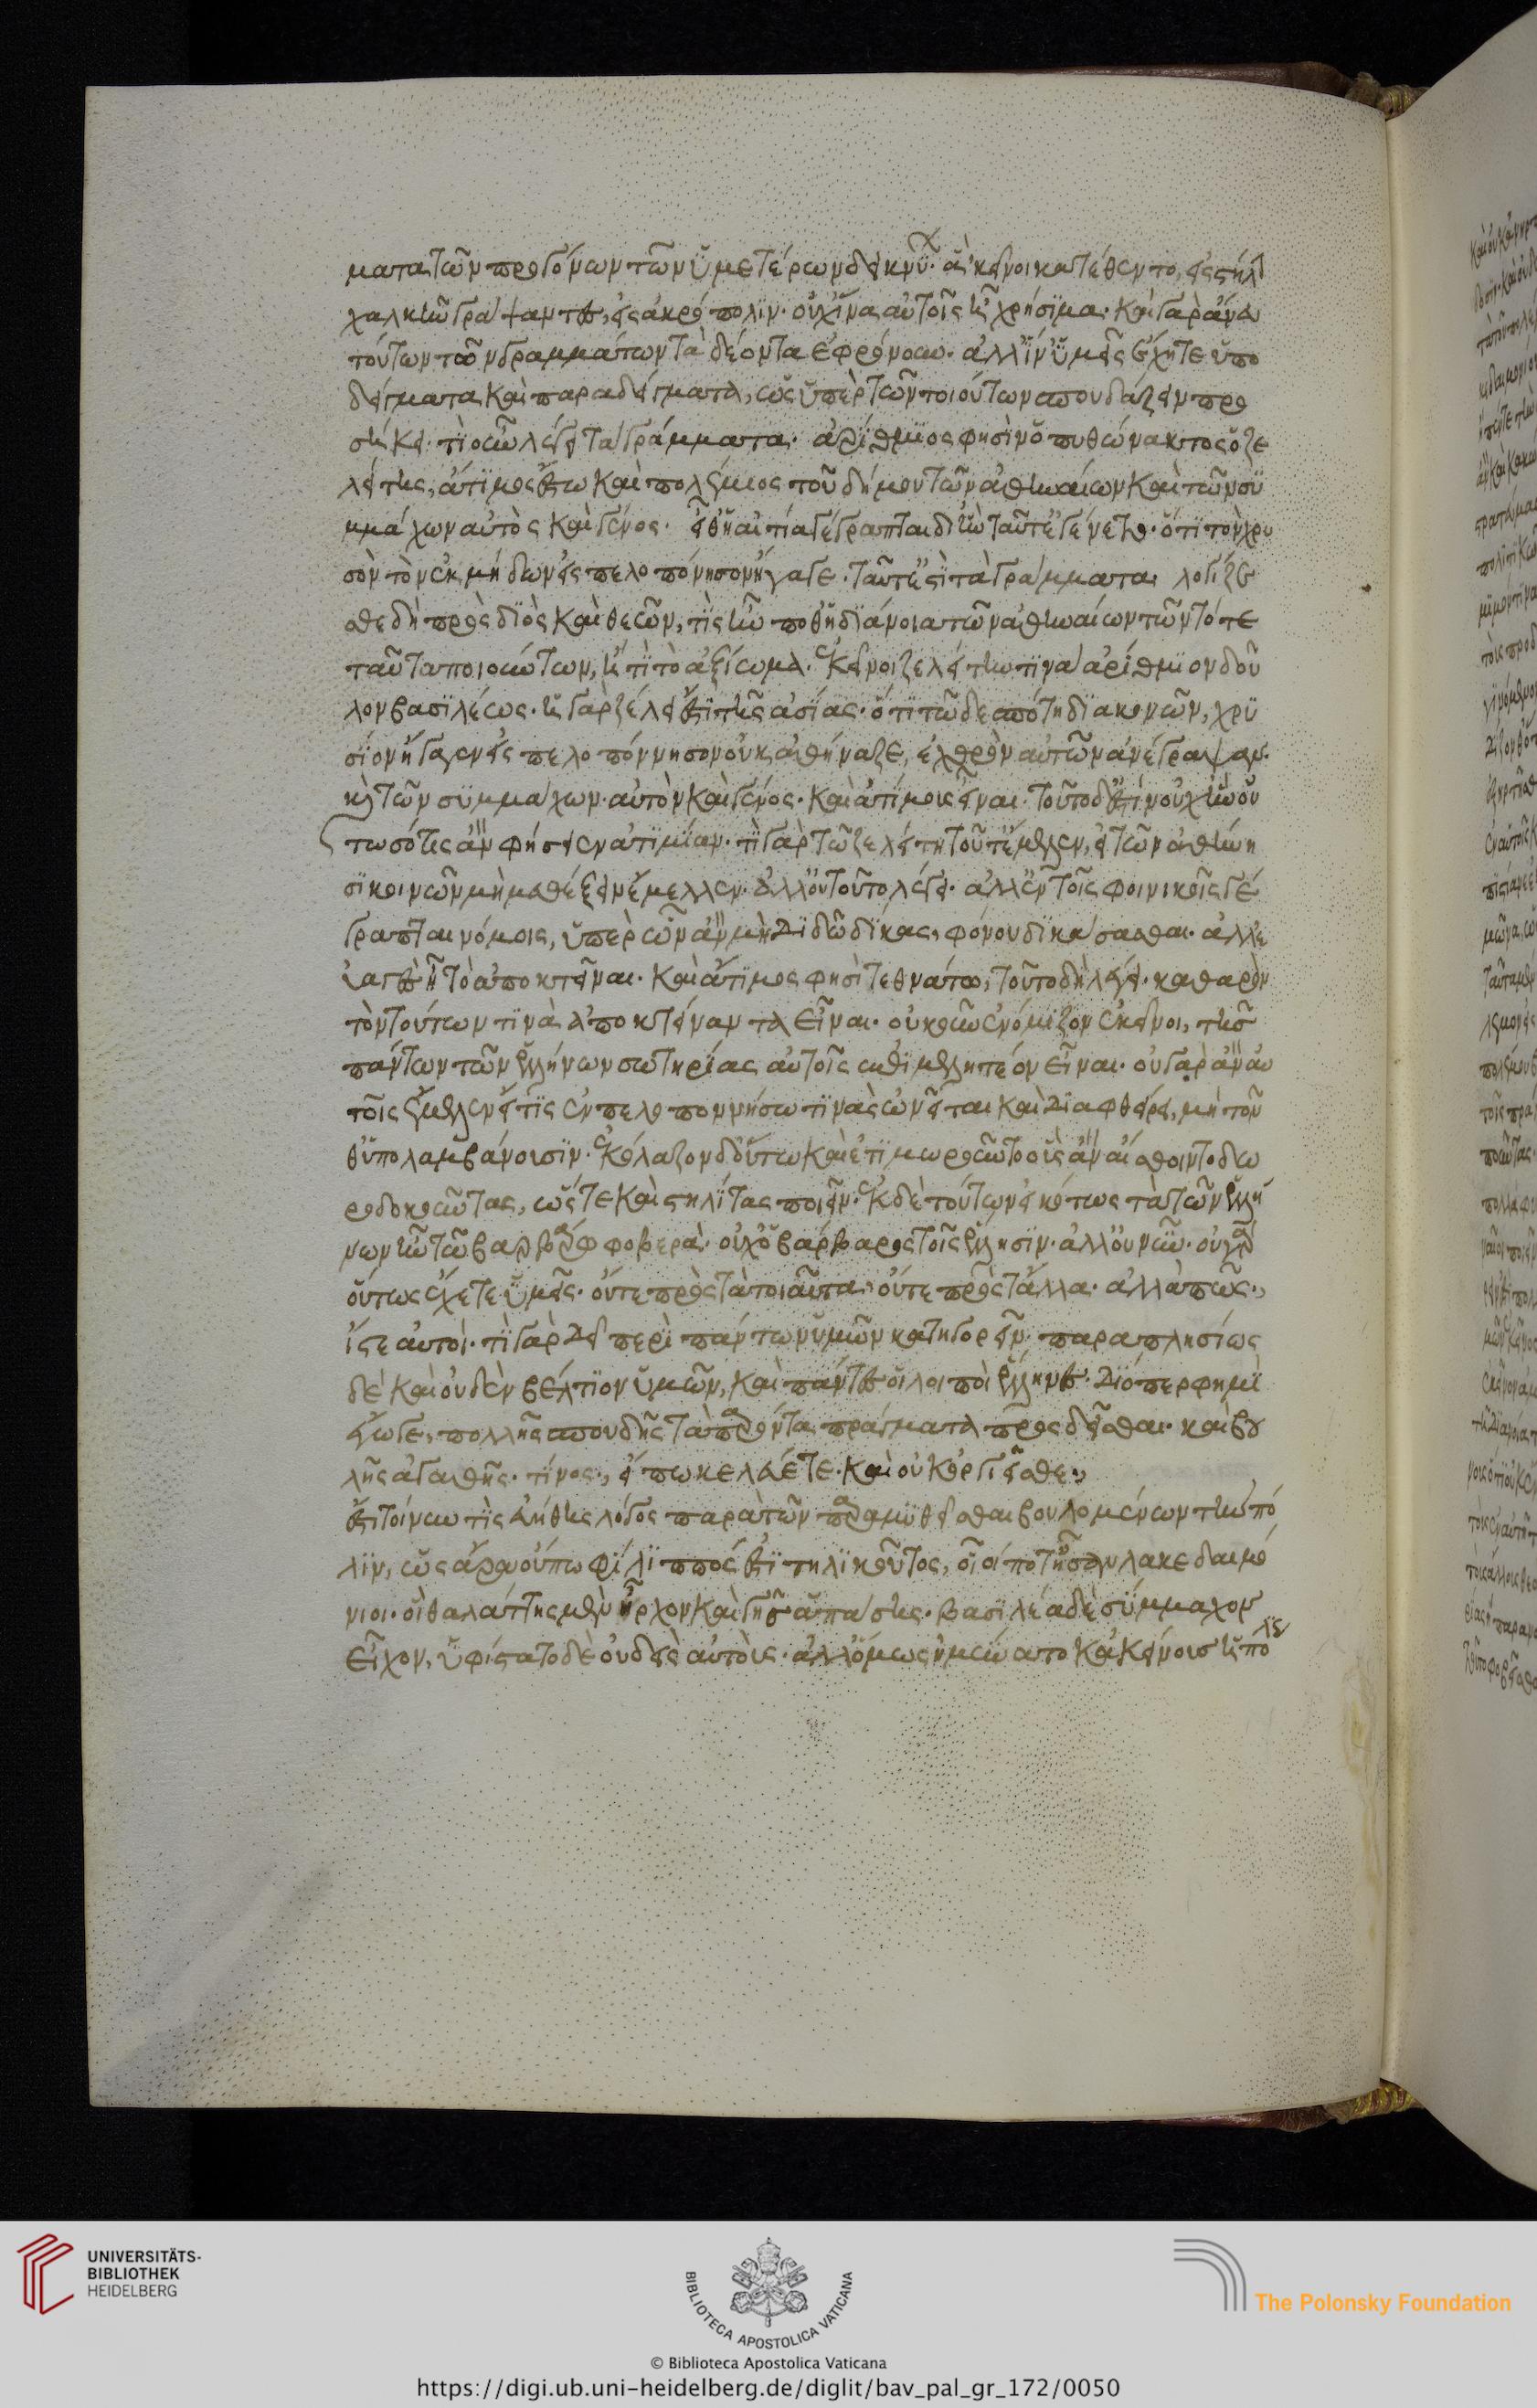 ματα τῶν προγόνων τῶν ὑμετέρων δεικνύ· ἃ ἐκεῖνοι κατέθεντο, εἰς στήλ
χαλκῆν γράψαντες, εἰς ἀκρόπολιν· οὐχ ἵνα αὐτοῖς ᾖ χρήσιμα· καὶ γὰρ ἄνευ
τούτων τῶν γραμμάτων τὰ δέοντα ἐφρόνουν· ἀλλ' ἵν' ὑμεῖς ἔχητε ὑπο
δείγματα καὶ παραδείγματα, ὡς ὑπὲρ τῶν τοιούτων σπουδάζειν προ
σήκει· τί οὖν λέγει τὰ γράμματα· ἀρίθμιος φησὶν ὁ πυθώνακτος ὁ ζε
λείτης, ἄτιμος ἔστω καὶ πολέμιος τοῦ δήμου τῶν ἀθηναίων καὶ τῶν συ
μμάχων αὐτὸς καὶ γένος· εἶθ' ἡ αἰτία γέγραπται δι' ἣν ταῦτ' ἐγένετο· ὅτι τὸν χρυ
σὸν τὸν ἐκ μήδων εἰς πελοπόνησον ἤγαγε· ταῦτ' ἐστὶ τὰ γράμματα· λογίζε
σθε δὴ πρὸς διὸς καὶ θεῶν, τίς ἦν ποθ' ἡ διάνοια τῶν ἀθηναίων τῶν τότε
ταῦτα ποιούντων, ἢ τί τὸ ἀξίωμα· ἐκεῖνοι ζελείτην τινὰ ἀρίθμιον δοῦ
λον βασιλέως· ἡ γὰρ ζέλειά ἐστι τῆς ἀσίας· ὅτι τῷ δεσπότῃ διακονῶν, χρυ
σίον ἤγαγεν εἰς πελοπόννησον οὐκ ἀθήναζε, ἐχθρὸν αὐτῶν ἀνέγραψαν·
κ τῶν συμμάχων· αὐτὸν καὶ γένος· καὶ ἀτίμους εἶναι· τοῦτο δ' ἐστὶν οὐχ ἣν οὑ
τωσί τις ἂν φήσειεν ἀτιμίαν· τί γὰρ τῷ ζελείτῃ τοῦτ' ἔμελεν, εἰ τῶν ἀθήνη
σι κοινῶν μὴ μεθέξειν ἔμελλεν· ἀλλ' οὐ τοῦτο λέγει· ἀλλ' ἐν τοῖς φονικοῖς γέ
γραπται νόμοις, ὑπὲρ ὧν ἂν μὴ διδῷ δίκας, φόνου δικάσασθαι· ἀλλ' ε
ὐαγὲς ᾖ τὸ ἀποκτεῖναι· καὶ ἄτιμος φησὶ τεθνάτω, τοῦτο δὴ λέγει· καθαρὸν
τὸν τούτων τινὰ ἀποκτείναντα εἶναι· οὐκοῦν ἐνόμιζον ἐκεῖνοι, τῆς
πάντων τῶν ἑλλήνων σωτηρίας αὐτοῖς ἐπιμελητέον εἶναι· οὐ γὰρ ἂν αὐ
τοῖς ἔμελεν εἴ τις ἐν πελοποννήσω τινὰς ὠνεῖται καὶ διαφθείρει, μὴ τοῦ
θ' ὑπολαμβάνουσιν· ἐκόλαζον δ' οὕτω καὶ ἐτιμωροῦντο οὓς ἂν αἴσθοιντο δω
ροδοκοῦντας, ὥστε καὶ στηλίτας ποιεῖν· ἐκ δὲ τούτων εἰκότως τὰ τῶν ἑλλή
νων ἦν τῷ βαρβάρῳ φοβερὰ· οὐχ ὁ βάρβαρος τοῖς ἕλλησιν· ἀλλ' οὐ νῦν· οὐ γὰρ
οὕτως ἔχετε ὑμεῖς· οὔτε πρὸς τὰ τοιαῦτα· οὔτε πρὸς τἄλλα· ἀλλὰ πῶς·,
ἴστε αὐτοί· τί γὰρ δεῖ περὶ πάντων ὑμῶν κατηγορεῖν· παραπλησίως
δὲ καὶ οὐδὲν βέλτιον ὑμῶν, καὶ πάντες οἱ λοιποὶ ἕλληνες· διόπερ φημὶ
ἔγωγε, πολλῆς σπουδῆς τὰ παρόντα πράγματα προσδεῖσθαι· καὶ βου
λῆς ἀγαθῆς· τίνος, εἴπω κελεύετε· καὶ οὐκ ὀργιεῖσθε·,
ἔστι τοίνυν τις εὐήθης λόγος παρὰ τῶν παραμυθεῖσθαι βουλομένων τὴν πό
λιν, ὡς ἄρα οὔπω φίλιππός ἐστι τηλικοῦτος, οἷοί ποτ' ἦσαν λακεδαιμό
νιοι· οἳ θαλάττης μὲν ἦρχον καὶ γῆς ἁπάσης· βασιλέα δὲ σύμμαχον
εἶχον, ὑφίστατο δὲ οὐδεὶς αὐτοῖς· ἀλλ' ὅμως ἠμύνατο κἀκείνους ἡ πό
λις
UNIVERSITÄTS-
BIBLIOTHEK
HEIDELBERG
BIBLIOTECA APOSTOLICA VATICANA
The Polonsky Foundation
© Biblioteca Apostolica Vaticana
https://digi.ub.uni-heidelberg.de/diglit/bav_pal_gr_172/0050